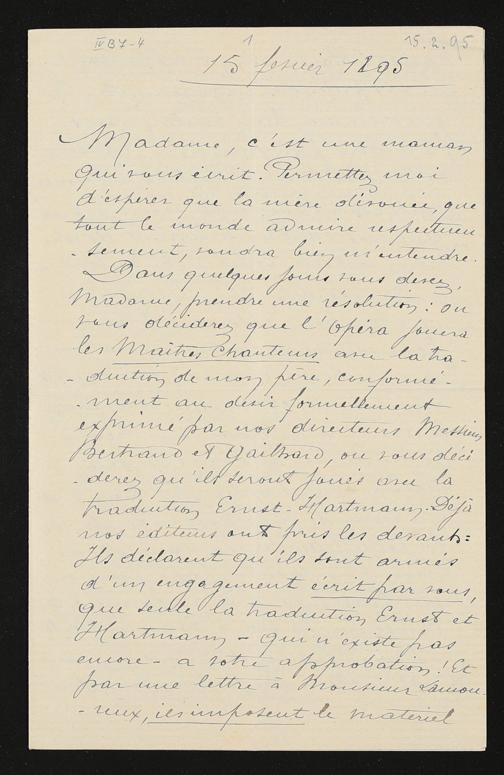 IV B 7-4
1
15.2.95
15 fevrier 1895
Madame, c'est une maman
qui vous écrit. Permettez moi
d'espérer que la mère dévouée, que
tout le monde admire respectueu
- sement, voudra bien m'entendre.
Dans quelques jours vous devez,
Madame, prendre une résolution: ou
vous déciderez que l'Opéra jouera
les Maîtres Chanteurs avec la tra-
- duction de mon père, conformé-
- ment au désir formellement
exprimé par nos directeurs Messieurs
Bertrand et Gailhard, ou vous déci
- derez qu'ils seront joués avec la
traduction Ernst-Hartmann. Déjà
nos éditeurs ont pris les devants:
Ils déclarent qu'ils sont armés
d'un engagement écrit par vous,
que seule la traduction Ernst et
Hartmann - qui n'existe pas
encore - a votre approbation! Et
par une lettre à Monsieur Lamou-
- reux, ils imposent le matériel